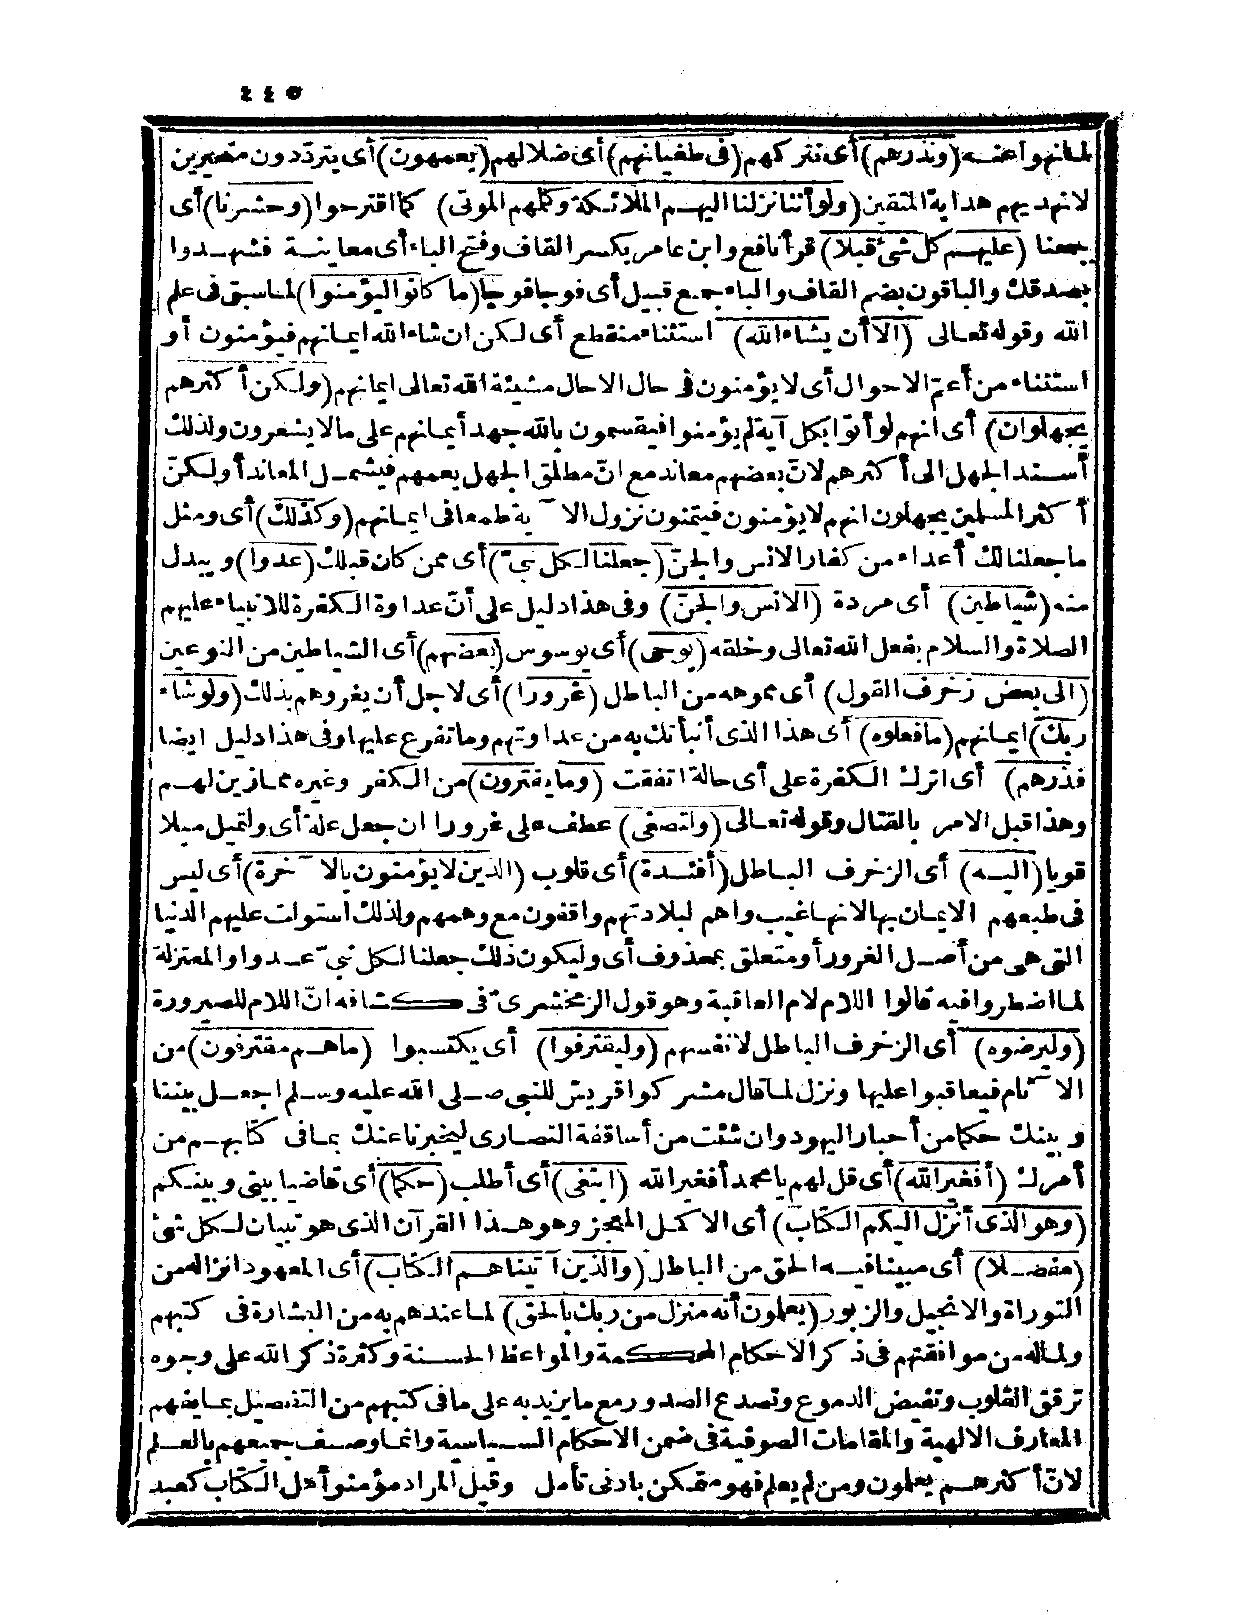 ٤٤٥
لما نهوا عنه (ونذرهم) أى نتركهم (فى طغيانهم) أى ضلالهم (يعمهون) أى يتردّدون متحيرين
لانهديهم هداية المتقين (ولو أننا نزلنا اليهم الملائكة وكلهم الموتى) كما اقترحوا (وحشرنا) أى
جمعنا (عليهم كل شئ قبلا) قرأ نافع وابن عامر بكسر القاف وفتح الباء أى معاينة فشهدوا
بصدقك والباقون بضم القاف والباء جمع قبيل أى فوجا فوجا (ما كانوا ليؤمنوا) لما سبق فى علم
الله وقوله تعالى (الا أن يشاء الله) استثناء منقطع أى لكن ان شاء الله ايمانهم فيؤمنون أو
استثناء من أعمّ الاحوال أى لا يؤمنون فى حال الا حال مشيئة الله تعالى ايمانهم (ولكن أكثرهم
يجهلون) أى انهم لو أتوا بكل آية لم يؤمنوا فيقسمون بالله جهد أيمانهم على ما لا يشعرون ولذلك
أسند الجهل الى أكثرهم لانّ بعضهم معاند مع انّ مطلق الجهل يعمهم فيشمل المعاند أو لكنّ
أكثر المسلمين يجهلون انهم لا يؤمنون فيتمنون نزول الآية طمعا فى ايمانهم (وكذلك) أى ومثل
ما جعلنا لك أعداء من كفار الانس والجنّ (جعلنا لكل نبىّ) أى ممن كان قبلك (عدوا) ويبدل
منه (شياطين) أى مردة (الانس والجنّ) وفى هذا دليل على أنّ عداوة الكفرة للانبياء عليهم
الصلاة والسلام بفعل الله تعالى وخلقه (يوحى) أى يوسوس (بعضهم) أى الشياطين من النوعين
(الى بعض زخرف القول) أى مموهه من الباطل (غرورا) أى لاجل أن يغروهم بذلك (ولو شاء
ربك) ايمانهم (ما فعلوه) أى هذا الذى أنبأتك به من عداوتهم وما تفرع عليها وفى هذا دليل ايضا
فذرهم) أى اترك الكفرة على أى حالة اتفقت (وما يفترون) من الكفر وغيره مما زين لهم
وهذا قبل الامر بالقتال وقوله تعالى (ولتصغى) عطف على غرورا ان جعل علة أى ولتميل ميلا
قويا (اليه) أى الزخرف الباطل (أفئدة) أى قلوب (الذين لا يؤمنون بالآخرة) أى ليس
فى طبعهم الايمان بها لانها غيب واهم لبلادتهم واقفون مع وهمهم ولذلك استولت عليهم الدنيا
التى هى من أصل الغرور أو متعلق بمحذوف أى وليكون ذلك جعلنا لكل نبىّ عدوا والمعتزلة
لما اضطروا فيه قالوا اللام لام العاقبة وهو قول الزمخشرىّ فى كشافه انّ اللام للصيرورة
(وليرضوه) أى الزخرف الباطل لانفسهم (وليقترفوا) أى يكتسبوا (ما هم مقترفون) من
الآثام فيعاقبوا عليها ونزل لما قال مشركوا قريش للنبى صلى الله عليه وسلم اجعل بيننا
وبينك حكما من أحبار اليهود وان شئت من أساقفة النصارى ليخبرنا عنك بما فى كتابهم من
أمرك (أفغير الله) أى قل لهم يا محمد أفغير الله (ابتغى) أى أطلب (حكما) أى قاضيا بينى وبينكم
(وهو الذى أنزل اليكم الكتاب) أى الاكمل المعجز وهو هذا القرآن الذى هو تبيان لكل شئ
(مفصلا) أى مبينا فيه الحق من الباطل (والذين آتيناهم الكتاب) أى المعهود انزاله من
التوراة والانجيل والزبور (يعلمون أنه منزل من ربك بالحق) لما عندهم به من البشارة فى كتبهم
ولما له من موافقتهم فى ذكر الاحكام المحكمة والمواعظ الحسنة وكثرة ذكر الله على وجوه
ترقق القلوب وتفيض الدموع وتصدع الصدور مع ما يزيد به على ما فى كتبهم من التفصيل بما يفهم
المعارف الالهية والمقامات الصوفية فى ضمن الاحكام السياسية وانما وصف جميعهم بالعلم
لانّ أكثرهم يعلمون ومن لم يعلم فهو متمكن بادنى تأمل وقيل المراد مؤمنوا أهل الكتاب كعبد